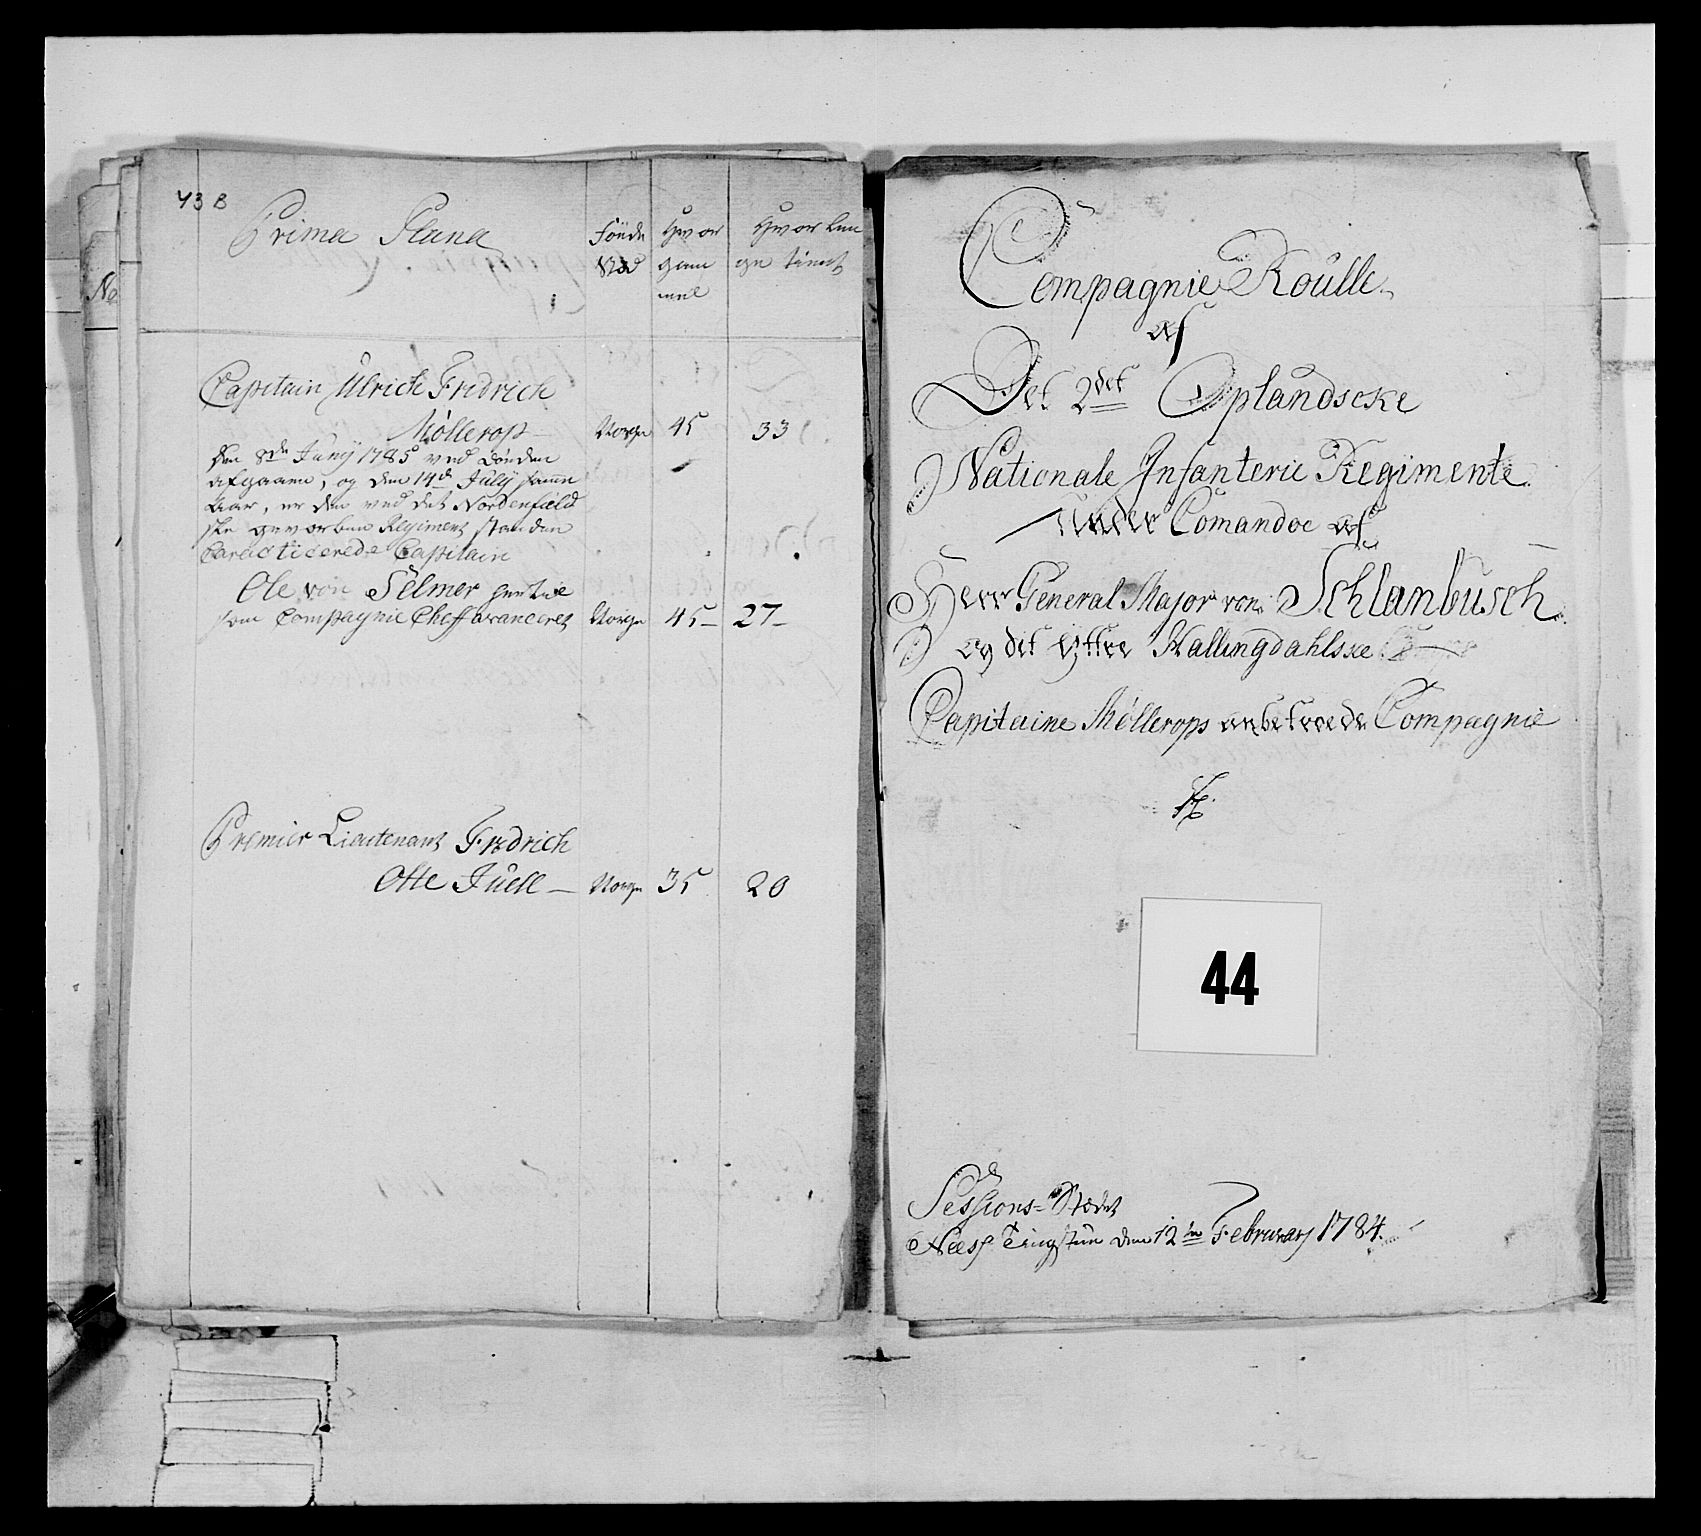 43 B
Prima Plana
Føede
Stæd
Hvor
gam
mel
Hvor læn
ge tient
No
Capitain Ulrich Fridrich
Møllerop
Norge 45 33
Den 8de Junij 1785 ved Døeden
afgaaen, og den 14de Julij samme
Aar, er den ved det Nordenfield
ske gevorben Regiment staaende
Caracticerede Capitain
Ole von Selmer
som Compagnie Chef avanceret Norge 45 27
Premier Lieutenant Fridrich
Otte Juell Norge 35 20
Compagnie Roulle
af
Det 2det Oplandscke
Nationale Infanterie Regimente
under Comandoe af
Herr General Major von Schlanbusch
og det yttre Hallingdahlske
Capitaine Møllerops anbetroede Compagnie
44
Sessions-Stædet
Næss Tingstue den 12te February 1784.